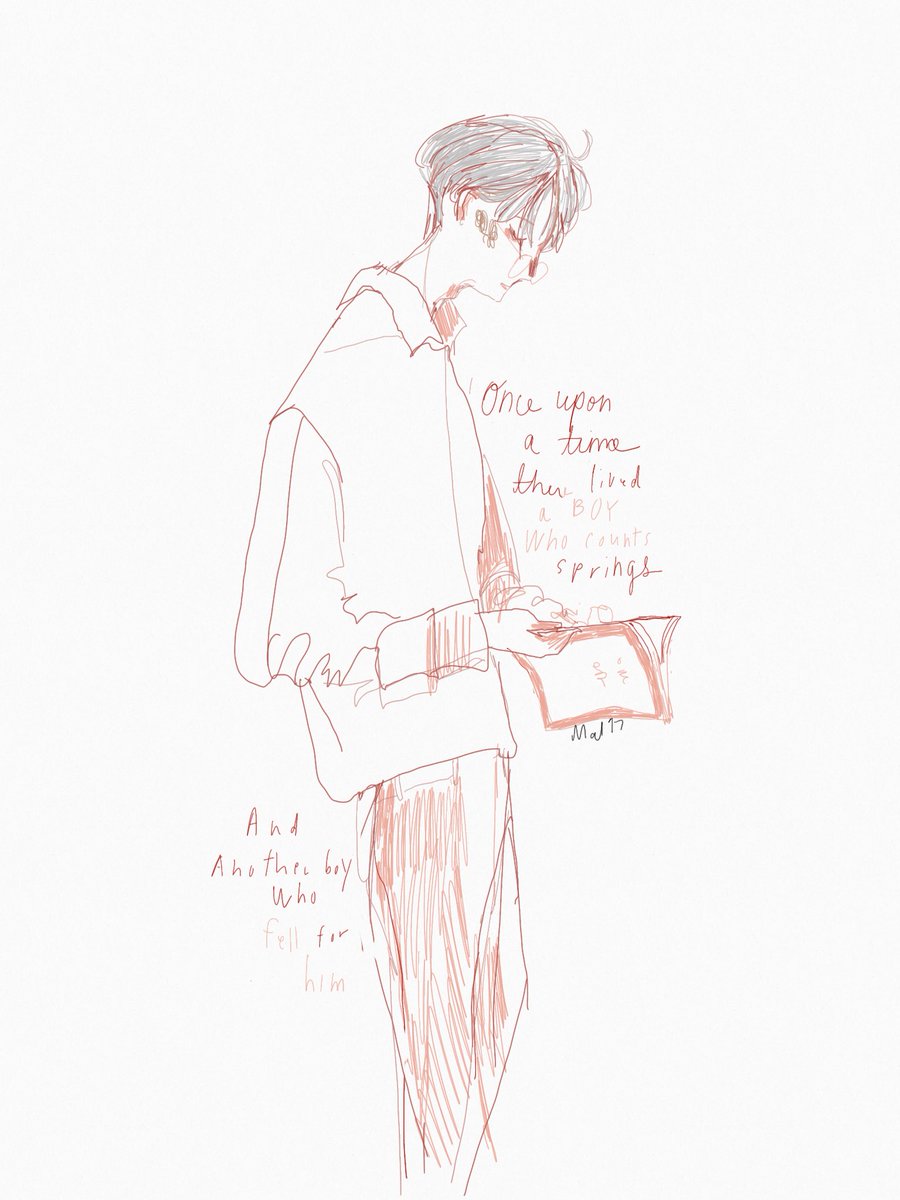 Once upon
a time
there lived
a BOY
Who counts
springs
Mal 17
And
Another boy
Who
fell for
him